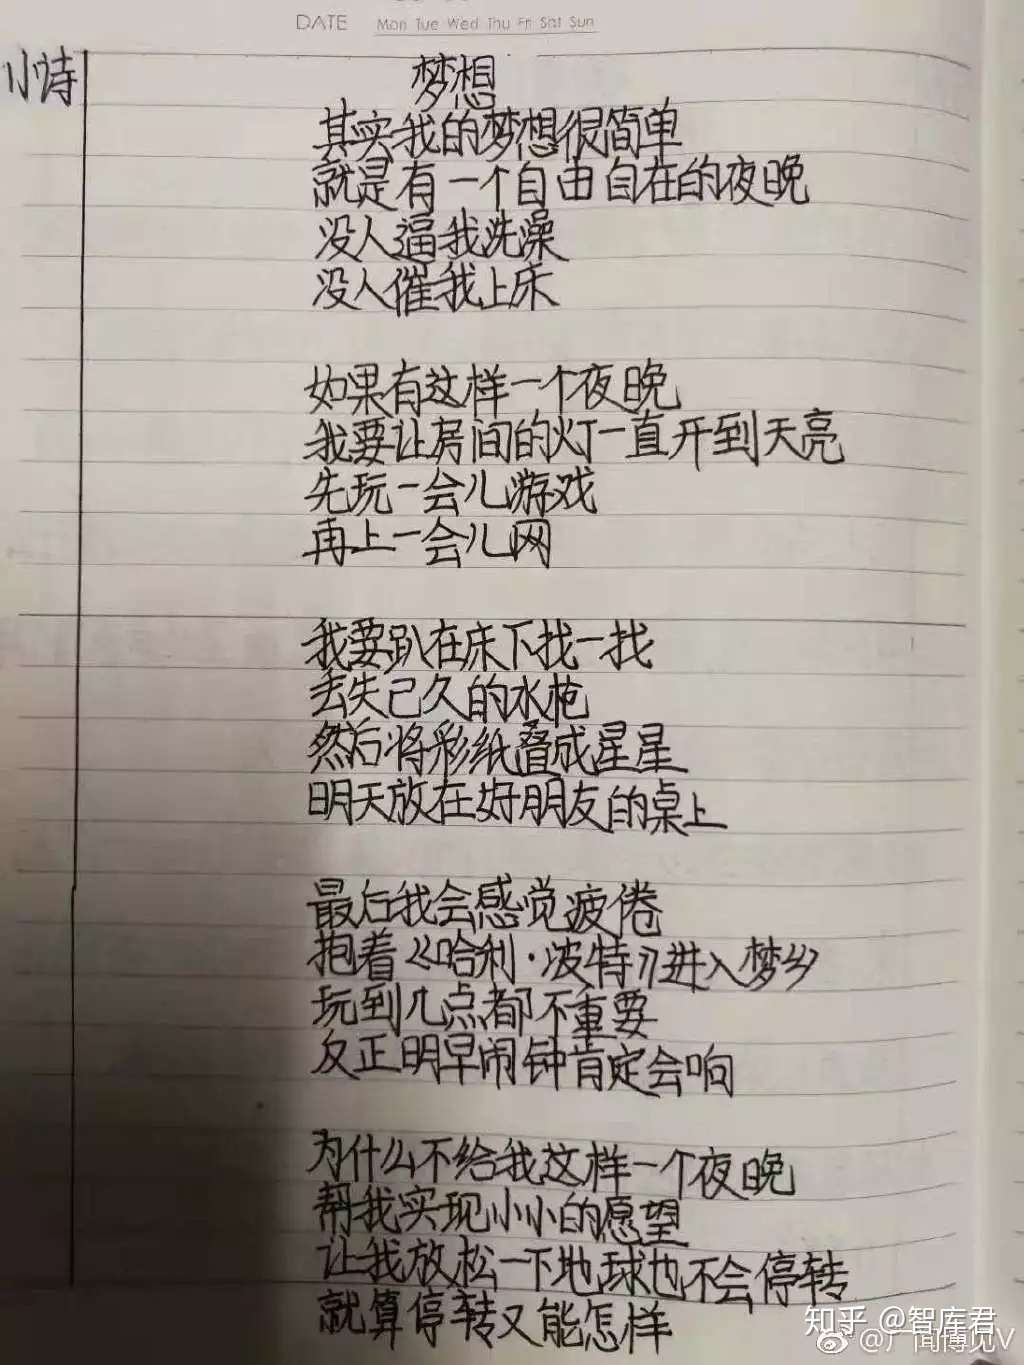 DATE Mon Tue Wed Thu Fri Sat Sun
小诗
梦想
其实我的梦想很简单
就是有一个自由自在的夜晚
没人逼我洗澡
没人催我上床
如果有这样一个夜晚
我要让房间的灯一直开到天亮
先玩一会儿游戏
再上一会儿网
我要趴在床下找一找
丢失已久的水枪
然后将彩纸叠成星星
明天放在好朋友的桌上
最后我会感觉疲倦
抱着《哈利·波特》进入梦乡
玩到几点都不重要
反正明早闹钟肯定会响
为什么不给我这样一个夜晚
帮我实现小小的愿望
让我放松一下地球也不会停转
就算停转又能怎样
知乎 @智库君
@广闻博见V